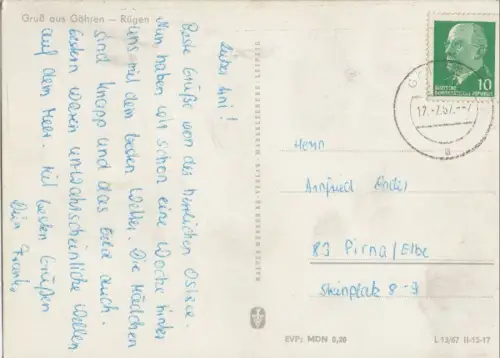 Gruß aus Göhren — Rügen
Lieber Arni!
Beste Grüße von der herrlichen Ostsee.
Nun haben wir schon eine Woche hinter
uns mit dem besten Wetter. Die Mädchen
sind knapp und das Geld auch.
Gestern waren unwahrscheinliche Wellen
auf dem Meer. Mit besten Grüßen
Dein Frank
DEUTSCHE
DEMOKRATISCHE REPUBLIK
10
17.-7.67.--7
a
Herrn
Arnfried Ender
83 Pirna/Elbe
Steinplatz 8-9
EVP: MDN 0,20
L 13/67 II-12-17